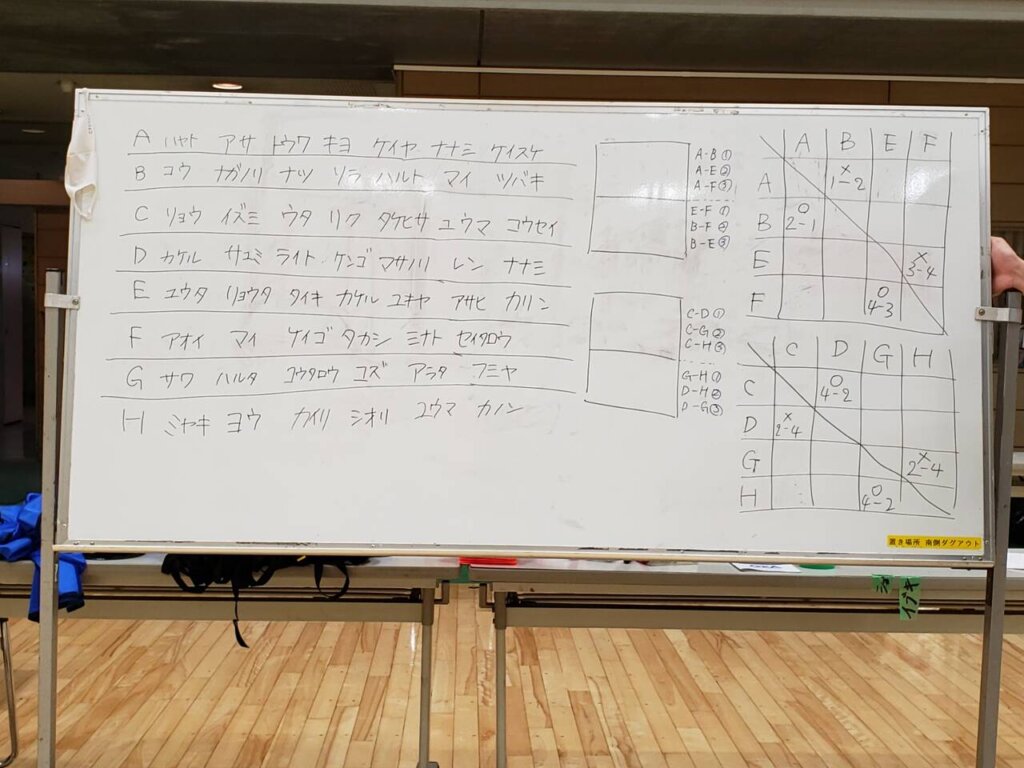 A ハヤト アサ トウワ キヨ ケイヤ ナナミ ケイスケ
B コウ ナガノリ ナツ ソラ ハルト マイ ツバキ
C リョウ イズミ ウタ リク タケヒサ ユウマ コウセイ
D カケル サユミ ライト ケンゴ マサノリ レン ナナミ
E ユウタ リョウタ タイキ カケル ユキヤ アサヒ カリン
F アオイ マイ ケイゴ タカシ ミナト セイタロウ
G サワ ハルタ コウタロウ コズ アラタ フミヤ
H ミヤキ ヨウ カイリ シオリ ユウマ カノン
A-B①
A-E②
A-F③
E-F①
B-F②
B-E③
C-D①
C-G②
C-H③
G-H①
D-H②
D-G③
A B E F
A × 1-2
B ○ 2-1
E × 3-4
F ○ 4-3
C D G H
C ○ 4-2
D × 2-4
G × 2-4
H ○ 4-2
置き場所 南側ダグアウト
イブキ